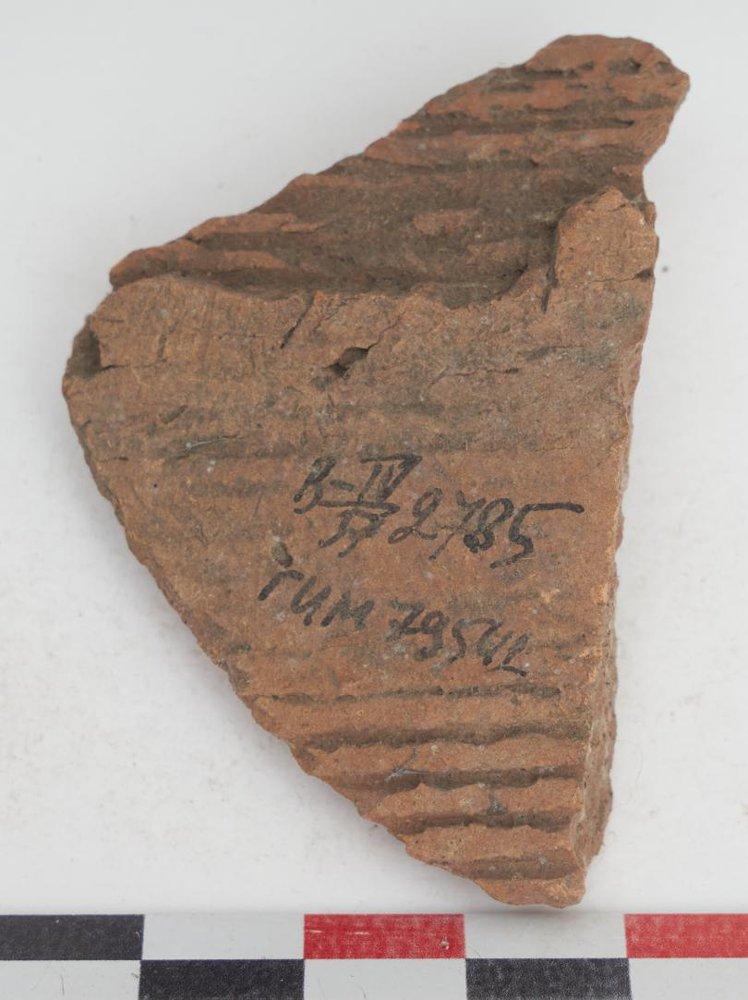 В-IV 2785
ГИМ 79542